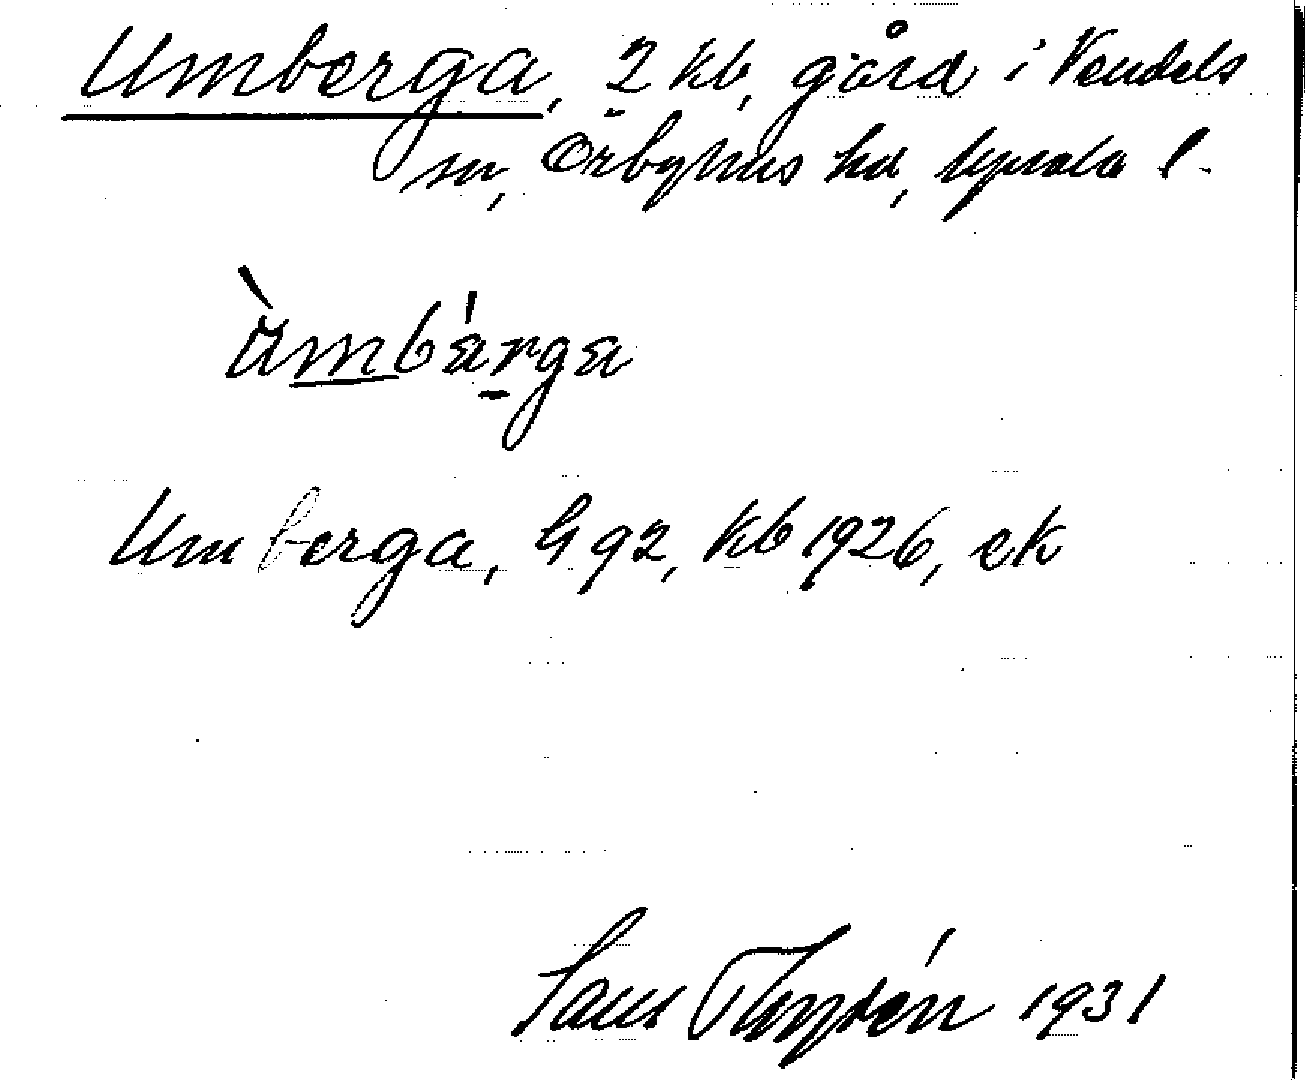 Umberga, 2 kb, gård i Vendels
sn, Örbyhus hd, Uppsala l.
ùmbárga
Umberga, G 92, kb 1926, ek
1931